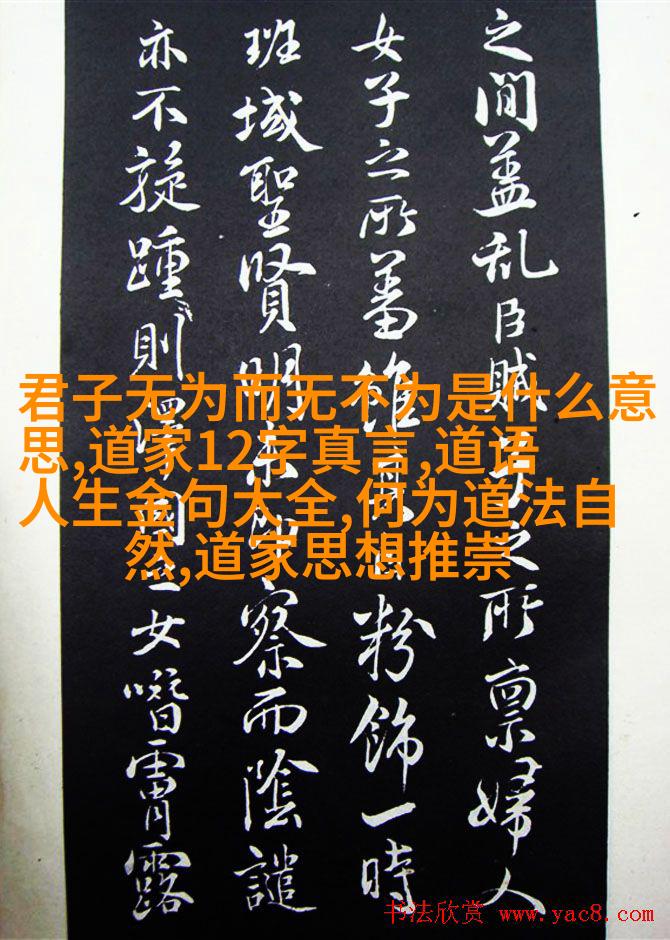 之間蓋乱臣賊之所禀婦人
女子之所蓄雖粉飾一時
班域聖賢明未察而陰譴
亦不旋踵則女霄露
君子无为而无不为是什么意
思,道家12字真言,道语
人生金句大全,何为道法自
然,道家思想推崇
书法欣赏 www.yac8.com